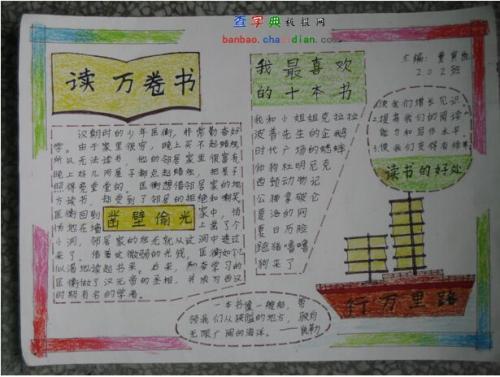 查字典板报网
banbao.chazidian.com
读万卷书
汉朝时的少年匡衡，非常勤奋好
学。由于家里很穷，晚上买不起蜡烛
所以无法读书。他的邻居家里很富有
晚上好几间屋子都点起蜡烛，把屋子
照得亮堂堂的。匡衡想借邻居家的地
方读书，却受到了邻居的拒绝和
匡衡回到
家中，
凿壁偷光
上凿了个
小洞，邻居家的烛光就从这洞中透过
来了。借着这微弱的光线，匡衡如
似渴地读起书来。后来，勤奋学习的
匡衡做了汉元帝的丞相，并成为西汉
时期有名的学者。
我最喜欢
的十本书
我和小姐姐克拉拉
波普先生的企鹅
时代广场的蟋蟀
帅狗杜明尼克
西顿动物记
夏洛的网
夏日历险
狗来了
主编：
202班
使我们增长见识
提高我们的阅读
能力和写作水平
使我们变得有修
读书的好处
一本书像一艘船，带
领我们从狭隘的地方，驶向
无限广阔的海洋。
行万里路